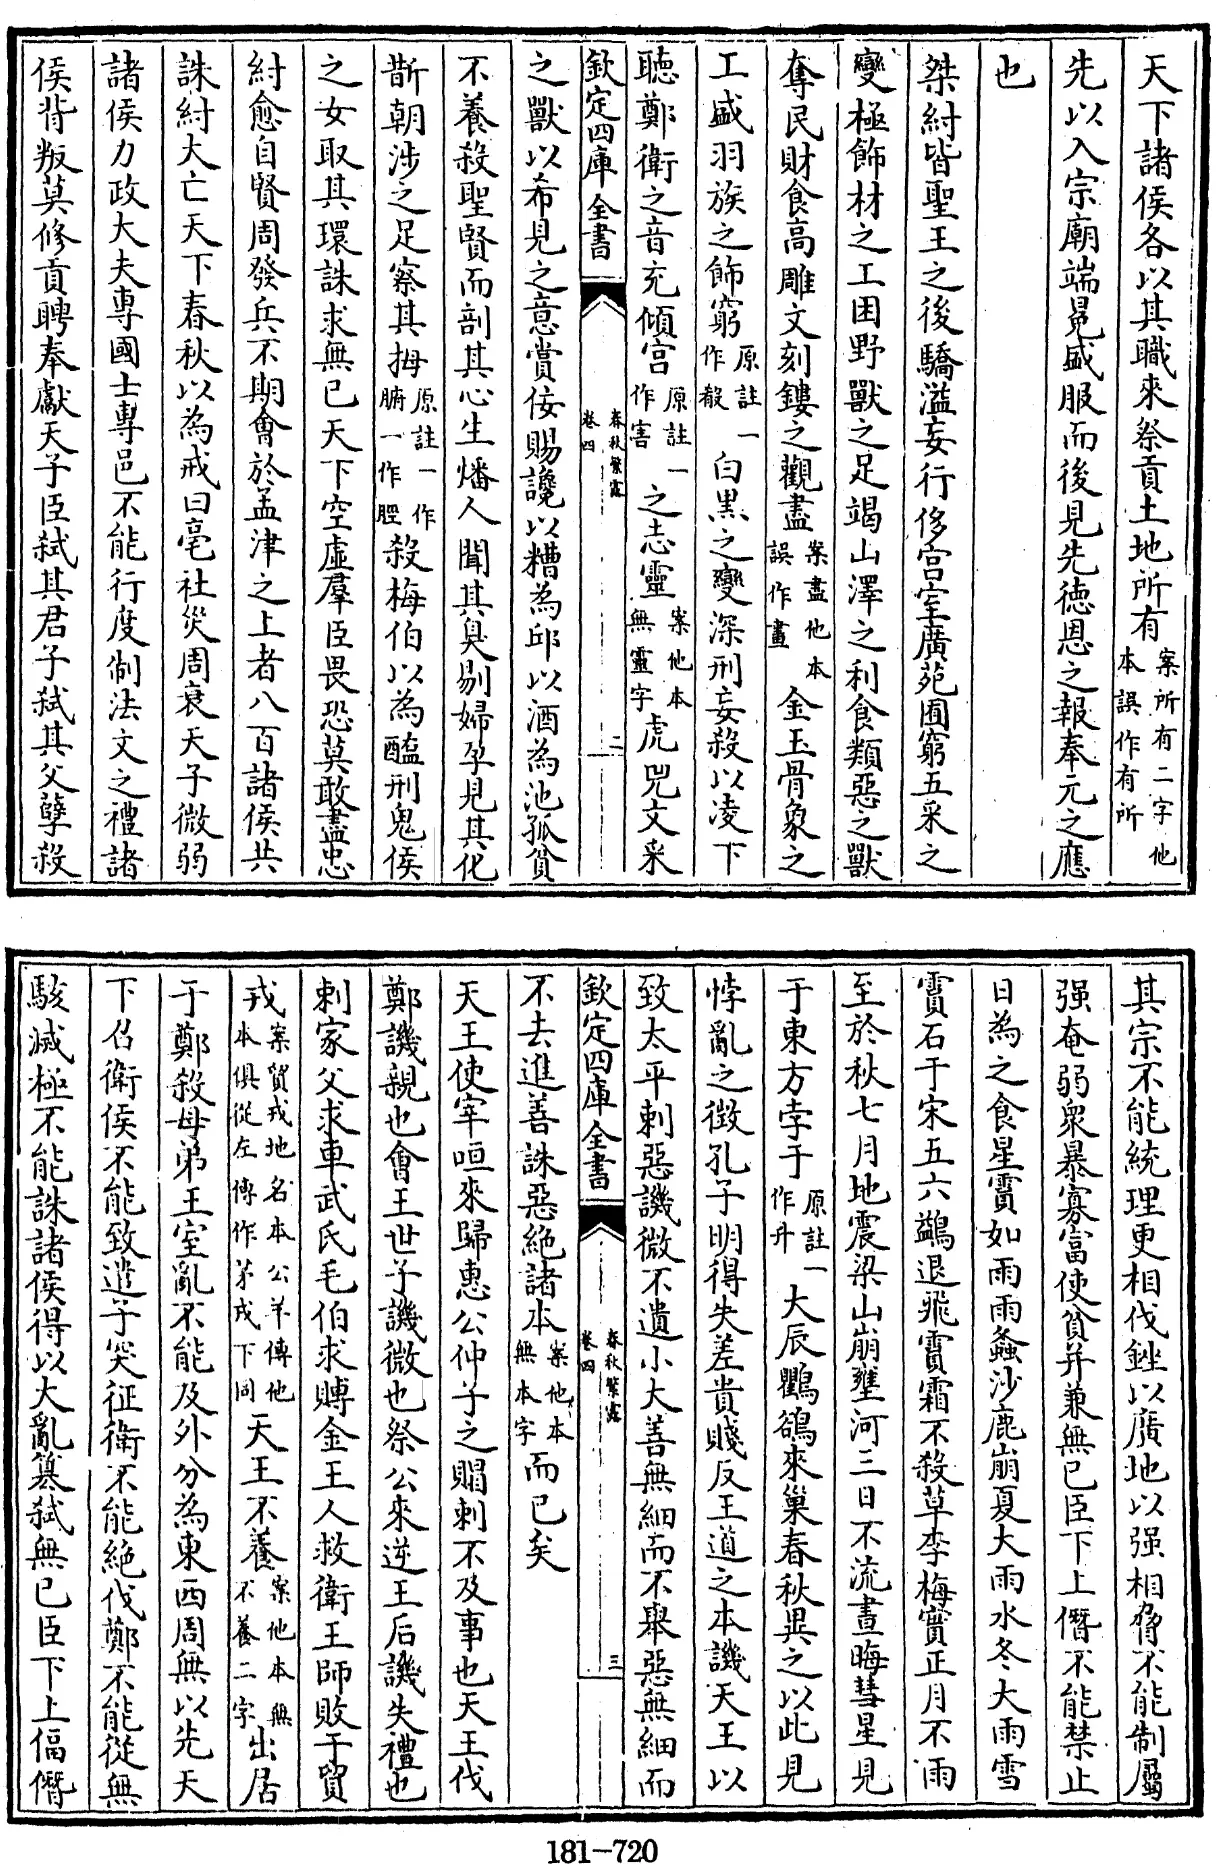 天下諸侯各以其職來祭貢土地所有案所有二字他本誤作有所
先以入宗廟端冕盛服而後見先徳恩之報奉元之應
也
桀紂皆聖王之後驕溢妄行侈宫室廣苑囿窮五采之
變極飾材之工困野獸之足竭山澤之利食類惡之獸
奪民財食高雕文刻鏤之觀盡案盡他本誤作畫金玉骨象之
工盛羽族之飾窮原註一作殽白黒之變深刑妄殺以凌下
聽鄭衛之音充傾宫原註一作害之志靈案他本無靈字虎兕文采
欽定四庫全書
春秋繁露
卷四
二
之獸以希見之意賞佞賜讒以糟為邱以酒為池孤貧
不養殺聖賢而剖其心生燔人聞其臭剔婦孕見其化
斮朝涉之足察其拇原註一作腑一作脛殺梅伯以為醢刑鬼侯
之女取其環誅求無已天下空虛羣臣畏恐莫敢盡忠
紂愈自賢周發兵不期會於孟津之上者八百諸侯共
誅紂大亡天下春秋以為戒曰亳社災周衰天子微弱
諸侯力政大夫專國士專邑不能行度制法文之禮諸
侯背叛莫修貢聘奉獻天子臣弑其君子弑其父孽殺
其宗不能統理更相伐銼以廣地以强相脅不能制屬
强奄弱衆暴寡富使貧并兼無已臣下上僭不能禁止
日為之食星霣如雨雨螽沙鹿崩夏大雨水冬大雨雪
霣石于宋五六鷁退飛霣霜不殺草李梅實正月不雨
至於秋七月地震梁山崩壅河三日不流晝晦彗星見
于東方孛于原註一作升大辰鸜鵒來巢春秋異之以此見
悖亂之徴孔子明得失差貴賤反王道之本譏天王以
致太平刺惡譏微不遺小大善無細而不舉惡無細而
欽定四庫全書
春秋繁露
卷四
三
不去進善誅惡絶諸本案他本無本字而已矣
天王使宰咺來歸惠公仲子之賵刺不及事也天王伐
鄭譏親也會王世子譏微也祭公來逆王后譏失禮也
刺家父求車武氏毛伯求賻金王人救衛王師敗于貿
戎案貿戎地名本公羊傳他本俱從左傳作茅戎下同天王不養案他本無不養二字出居
于鄭殺母弟王室亂不能及外分為東西周無以先天
下召衛侯不能致遣子突征衛不能絶伐鄭不能從無
駭滅極不能誅諸侯得以大亂簒弑無已臣下上偪僭
181-720